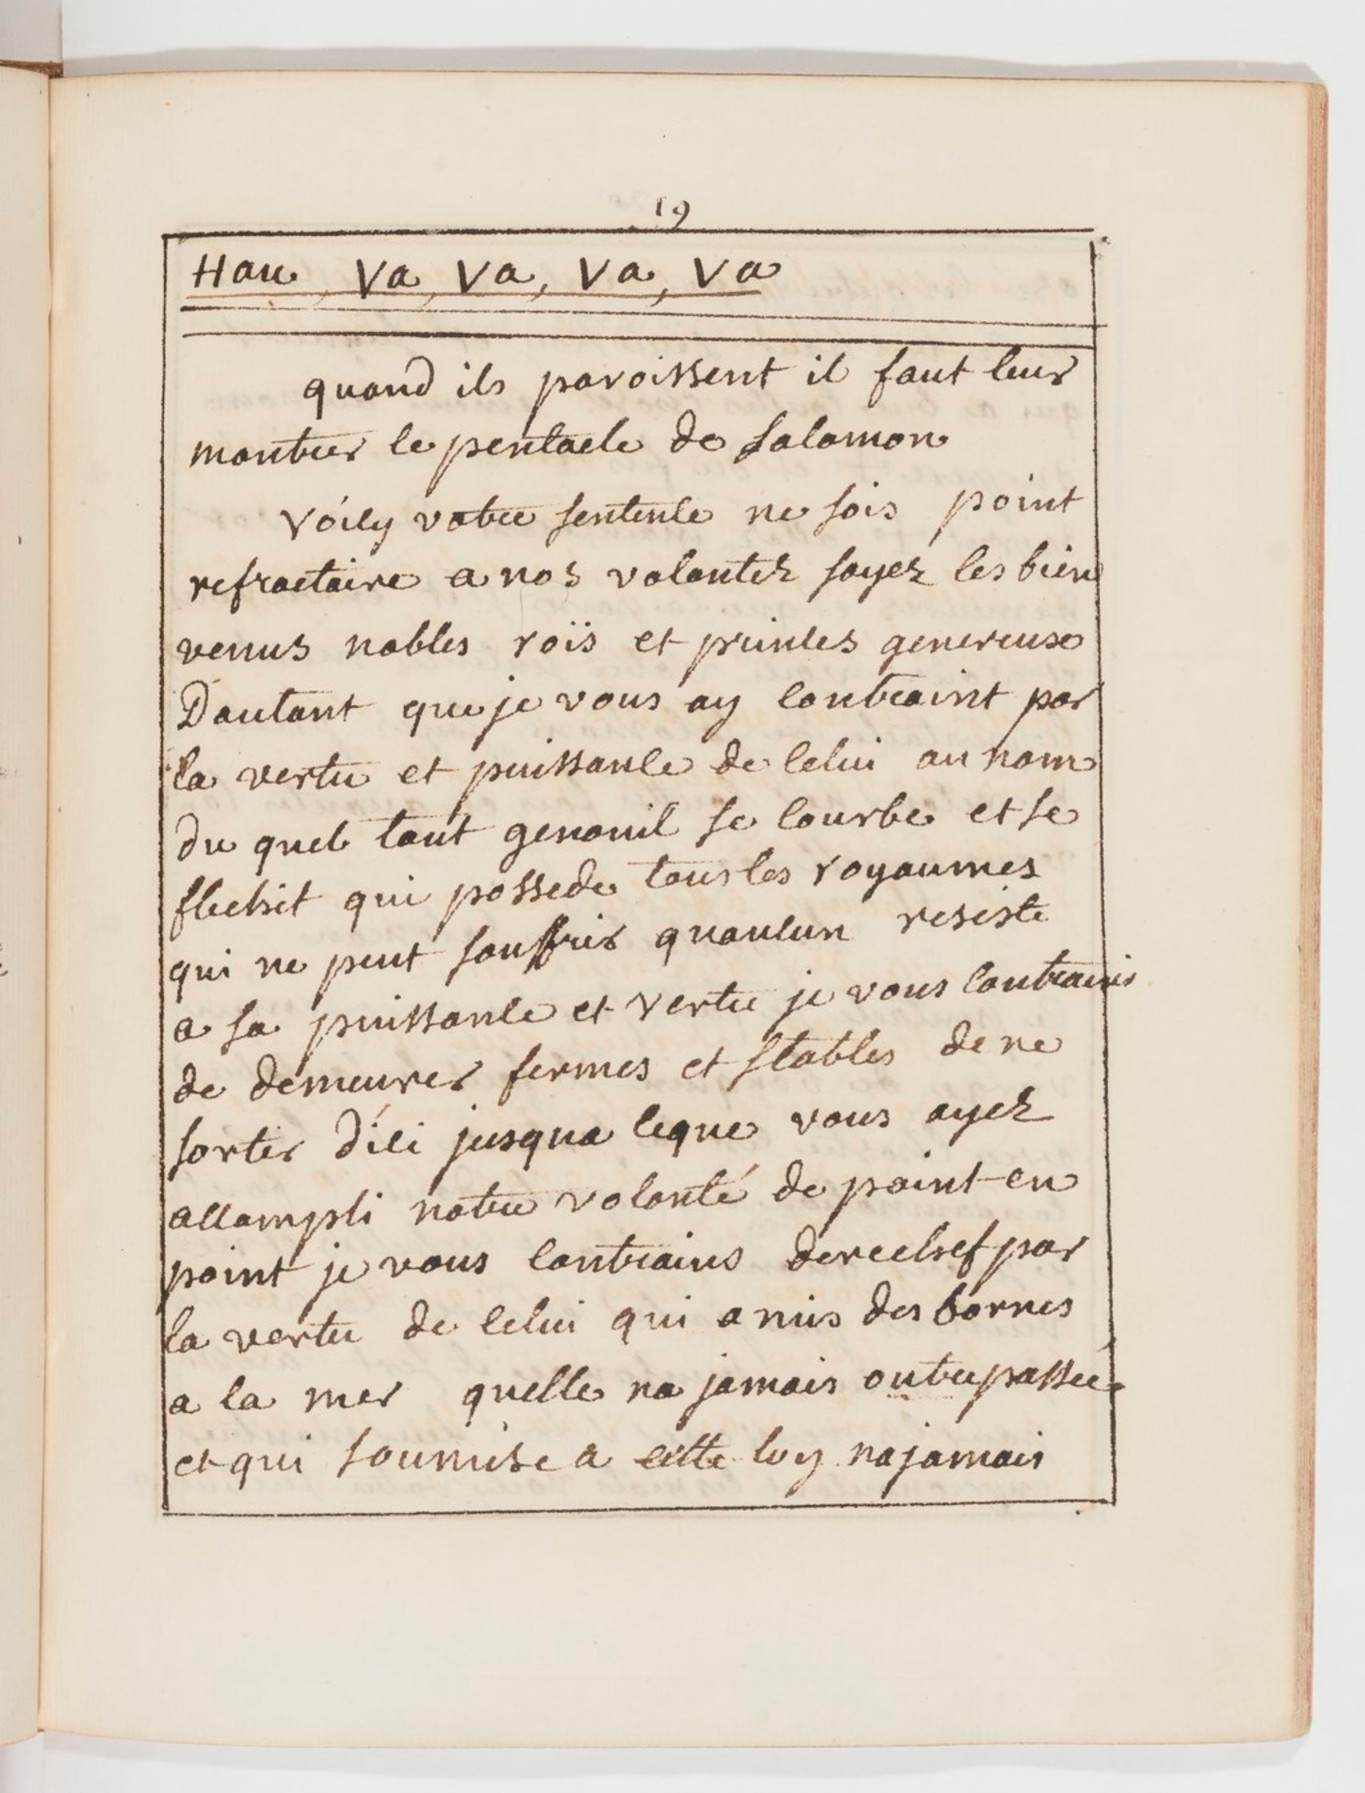 19
Hau, Va, Va, Va, Va
quand ils paroissent il faut leur
montrer le pentacle de Salomon
Voicy votre sentence ne sois point
refractaire a nos volontez soyez les bien
venus nobles roïs et princes genereuse
Dautant que je vous ay contraint par
la vertu et puissance de celui au nom
du quel tout genouil se courbe et se
flechit qui possede tous les royaumes
qui ne peut souffrir quaucun resiste
a sa puissance et vertu je vous contrains
de demeurer fermes et stables de ne
sortir d'ici jusqua ceque vous ayez
accompli notre volonté de point en
point je vous contrains derechef par
la vertu de celui qui a mis des bornes
a la mer quelle na jamais outrepassée
et qui soumise a cette loy na jamais